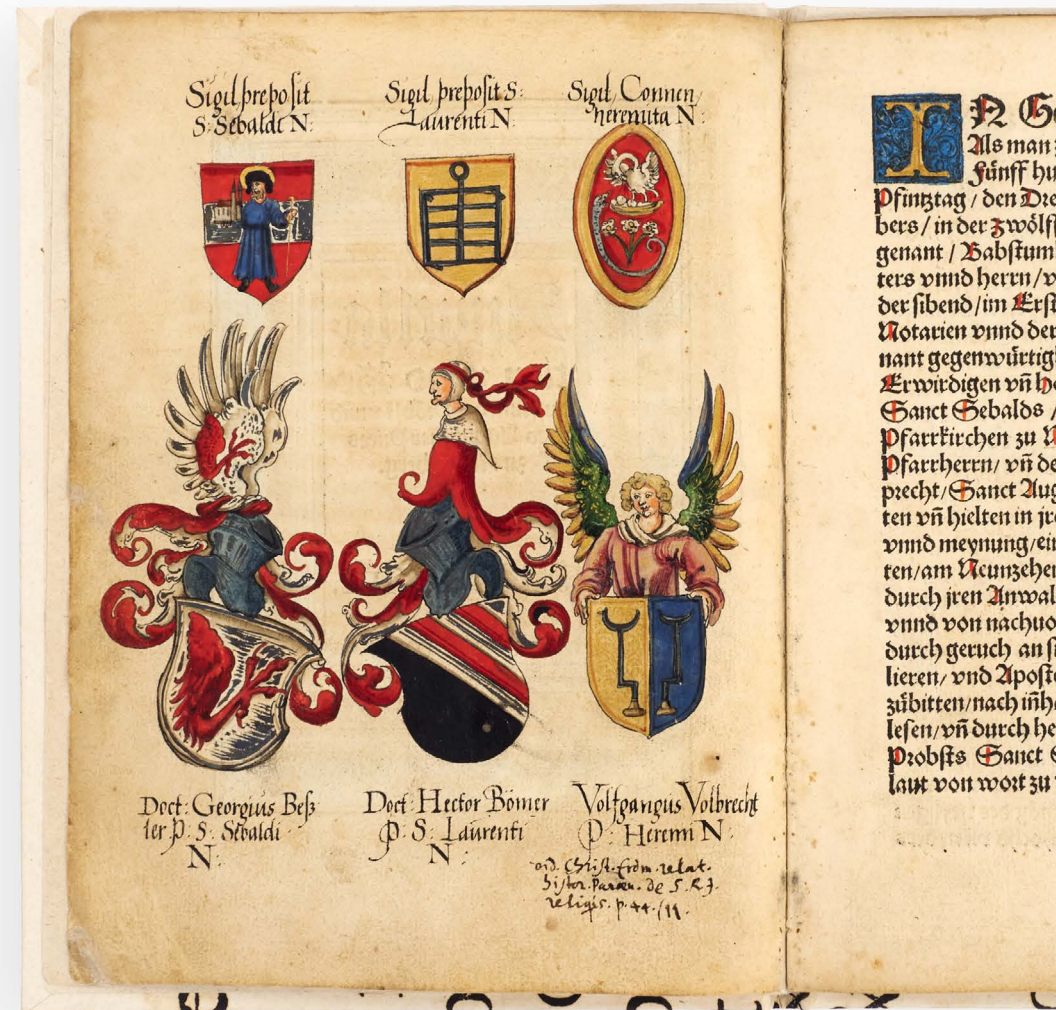 Sigil preposit
S: Sebaldi N:
Sigil preposit S:
Laurenti N:
Sigil, Connen,
heremita N:
Doct: Georgius Beß
ler P. S. Sebaldi
N:
Doct Hector Bömer
P. S. Laurenti
N:
Volfgangus Volbrecht
P: Heremi N:
Christ. relat.
histor. Paraen. de S. R. J.
religis. p. 44.
IN
Als man
Fünff
Pfintztag / den
bers / in der zwölff
genant / Babstum
ters vnnd herrn / v
der sibend / im Erst
Notarien vnnd der
nant gegenwürtig
Erwirdigen vñ
Sanct Sebalds /
Pfarrkirchen zu
Pfarrherrn / vñ de
precht / Sanct Aug
ten vñ hielten in jre
vnnd meynung / ein
ten / am Neunzehen
durch jren Anwal
vnnd von nachuo
durch geruch an
lieren / vnd Aposte
zůbitten / nach iñh
lesen / vñ durch he
Probsts Sanct
laut von wort zu